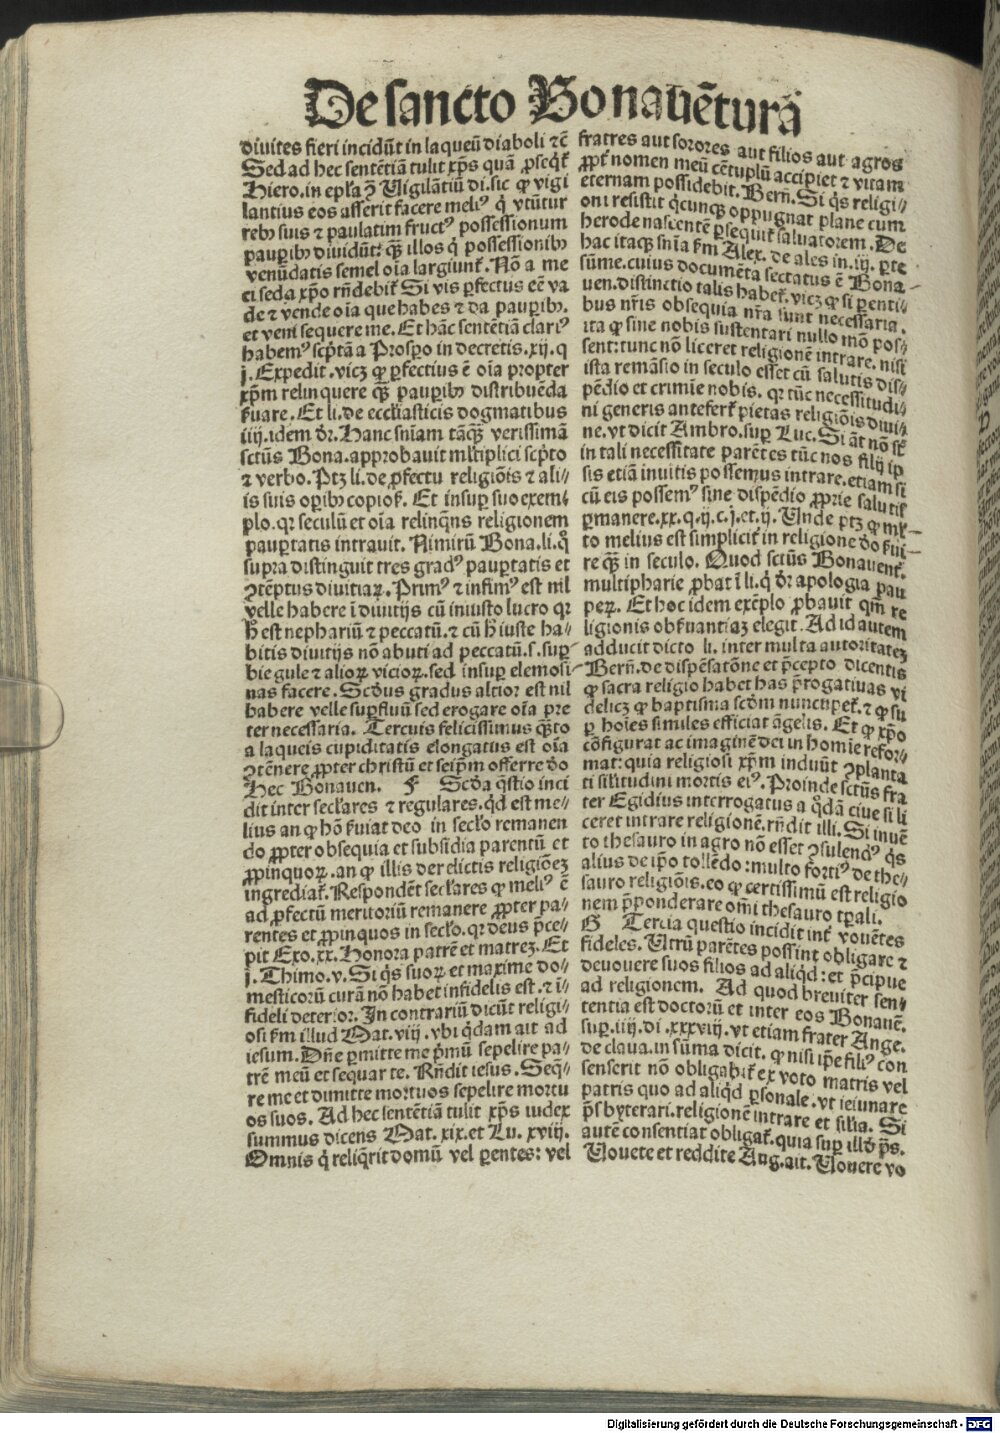 De sancto Bonauētura
diuites fieri incidūt in laqueū diaboli ⁊c̄
Sed ad hec sentētiā tulit xp̄s quā ꝓseqͥt᷑
Hiero. in epl̓a ꝯ̄ Vigilātiū di. sic ꝙ vigi
lantius eos asserit facere meliꝰ qͥ vtūtur
rebꝫ suis ⁊ paulatim fructꝰ possessionum
pauꝑibꝫ diuidūt: qꝫ̄ illos qͥ possessionibꝫ
venūdatis semel oīa largiunt᷑. Nō a me
ci sed a xp̄o rn̄debit᷑ Si vis ꝑfectus eē va
de ⁊ vende oīa que habes ⁊ da pauꝑibꝫ.
et veni sequere me. Et hāc sentētiā clariꝰ
habemꝰ scp̄tā a Prosꝑo in decretis. xij. q
j. Expedit. vicꝫ ꝙ ꝑfectius ē oīa propter
xp̄m relinquere qꝫ̄ pauꝑibꝫ distribuēda
ẜuare. Et li. de eccl̓iasticis dogmatibus
iiij. idem dr̄. Hanc sn̄iam tāqꝫ̄ verissimā
sctūs Bona. approbauit ml̓tiplici scp̄to
⁊ verbo. Ptꝫ li. de ꝓfectu religiōis ⁊ ali⸗
is suis oꝑibꝫ copioẜ. Et insuꝑ suo exem⸗
plo. qꝛ seculū et oīa relinqͥns religionem
pauꝑtatis intrauit. Nimirū Bona. li. qͦ
supra distinguit tres gradꝰ pauꝑtatis et
ꝯtēptus diuitiaꝝ. Primꝰ ⁊ infimꝰ est nil
velle habere ī diuitijs cū iniusto lucro qꝛ
h̄ est nephariū ⁊ peccatū. ⁊ cū h̄ iuste ha⸗
bitis diuitijs nō abuti ad peccatū. s. suꝑ
bie gule ⁊ alioꝝ vicioꝝ. sed insuꝑ elemosi⸗
nas facere. Scd̄us gradus altior est nil
habere velle suꝑfluū sed erogare oīa pre
ter necessaria. Tercius felicissimus qꝫ̄to
a laqueis cupiditatis elongatus est oīa
ꝯtēnere ꝓpter christū et seip̄m offerre d̄o
Hec Bonauen. F Scd̄a q̄stio inci
dit inter secl̓ares ⁊ regulares. qͥd est me⸗
lius an ꝙ hō ẜuiat deo in secl̓o remanen
do ꝓpter obsequia et subsidia parentū et
ꝓpinquoꝝ. an ꝙ illis derelictis religiōeꝫ
ingrediat᷑. Respondēt secl̓ares ꝙ meliꝰ ē
ad ꝓfectū meritoriū remanere ꝓpter pa⸗
rentes et ꝓpinquos in secl̓o. qꝛ deus p̄ce⸗
pit Exo. xx. Honora patrē et matreꝫ. Et
j. Thimo. v. Si qͥs suoꝝ et maxime do⸗
mesticorū curā nō habet infidelis est. ⁊ ī⸗
fideli deterior. In contrariū dicūt religi⸗
osi ẜm illud Mat. viij. vbi qͥdam ait ad
iesum. Dn̄e ꝑmitte me p̄mū sepelire pa⸗
trē meū et sequar te. Rn̄dit iesus. Seq⸗
re me et dimitte mortuos sepelire mortu
os suos. Ad hec sentētiā tulit xp̄s iudex
summus dicens Mat. xix. et Lu. xviij.
Omnis qͥ reliqͥrit domū vel ꝑentes: vel
fratres aut sorores aut filios aut agros
ꝓpt᷑ nomen meū cētuplū accipiet ⁊ vitam
eternam possidebit. Bern̄. Si qͥs religi⸗
oni resistit qͥcunqꝫ oppugnat plane cum
herode nascentē ꝑsequit᷑ saluatorem. De
hac itaqꝫ sn̄ia ẜm Alex. de ales in. iij. ꝑte
sūme. cuius documēta sectatus ē Bona⸗
uen. distinctio talis habet᷑. vicꝫ ꝙ si ꝑenti⸗
bus nr̄is obsequia nr̄a sunt necessaria.
ita ꝙ sine nobis sustentari nullo mō pos⸗
sent: tunc nō liceret religionē intrare. nisi
ista remāsio in seculo esset cū salutis dis⸗
pēdio et crimīe nobis. qꝛ tūc necessitudi⸗
ni generis antefert᷑ pietas religiōis diui⸗
ne. vt dicit Ambro. suꝑ Luc. Si āt nō sūt
in tali necessitate parētes tūc nos filij ip
sis etiā inuitis possemus intrare. etiam si
cū eis possemꝰ sine dispēdio ꝓprie salutis
ꝑmanere. xx. q. ij. c. j. et. ij. Vnde ptꝫ ꝙ ml̓⸗
to melius est simplicit᷑ in religione d̄o ẜui⸗
re qꝫ̄ in seculo. Quod sctūs Bonauent᷑.
multipharie ꝓbat ī li. qͥ dr̄ apologia pau
peꝝ. Et hoc idem exēplo ꝓbauit qm̄ re
ligionis obẜuantiaꝫ elegit. Ad id autem
adducit dicto li. inter multa autoritateꝫ
Bern̄. de dispēsatōne et p̄cepto dicentis
ꝙ sacra religio habet has p̄rogatiuas vi
delicꝫ ꝙ baptisma scd̄m nuncupet᷑. ⁊ ꝙ su
ꝑ hoīes similes efficiat āgelis. Et ꝙ xp̄o
cōfigurat ac imaginē dei in homīe refor⸗
mat: quia religiosi xp̄m induūt ꝯplanta
ti sil̓itudini mortis eiꝰ. Proinde sctūs fra
ter Egidius interrogatus a qͦdā ciue si li
ceret intrare religionē. rn̄dit illi. Si inuē
to thesauro in agro nō esset ꝯsulendꝰ qͥs
alius de ip̄o tollēdo: multo fortiꝰ de the⸗
sauro religiōis. eo ꝙ certissimū est religio
nem p̄ponderare om̄i thesauro tꝑali.
G Tercia questio incidit int᷑ vouētes
fideles. Vtrū parētes possint obligare ⁊
deuouere suos filios ad aliqͥd: et p̄cipue
ad religionem. Ad quod breuiter sen⸗
tentia est doctorū et inter eos Bonauē.
suꝑ. iiij. di. xxxviij. vt etiam frater Ange.
de claua. in sūma dicit. ꝙ nisi ip̄e filiꝰ con
senserit nō obligabit᷑ ex voto matris vel
patris quo ad aliqͥd ꝑsonale. vt ieiunare
p̄sbyterari. religionē intrare et sil̓ia. Si
autē consentiat obligat᷑. quia suꝑ illō ps̄.
Vouete et reddite Aug. ait. Vouere vo
Digitalisierung gefördert durch die Deutsche Forschungsgemeinschaft - DFG